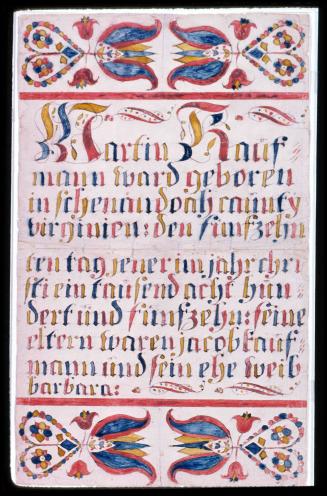 Martin Kauf
mann ward geboren
in schenandoah caunty
virginien: den funfzehn
ten tag jener im jahr chri
sti ein tausend acht hun
dert und funfzehn: seine
eltern waren jacob kauf
mann und sein ehe weib
barbara: